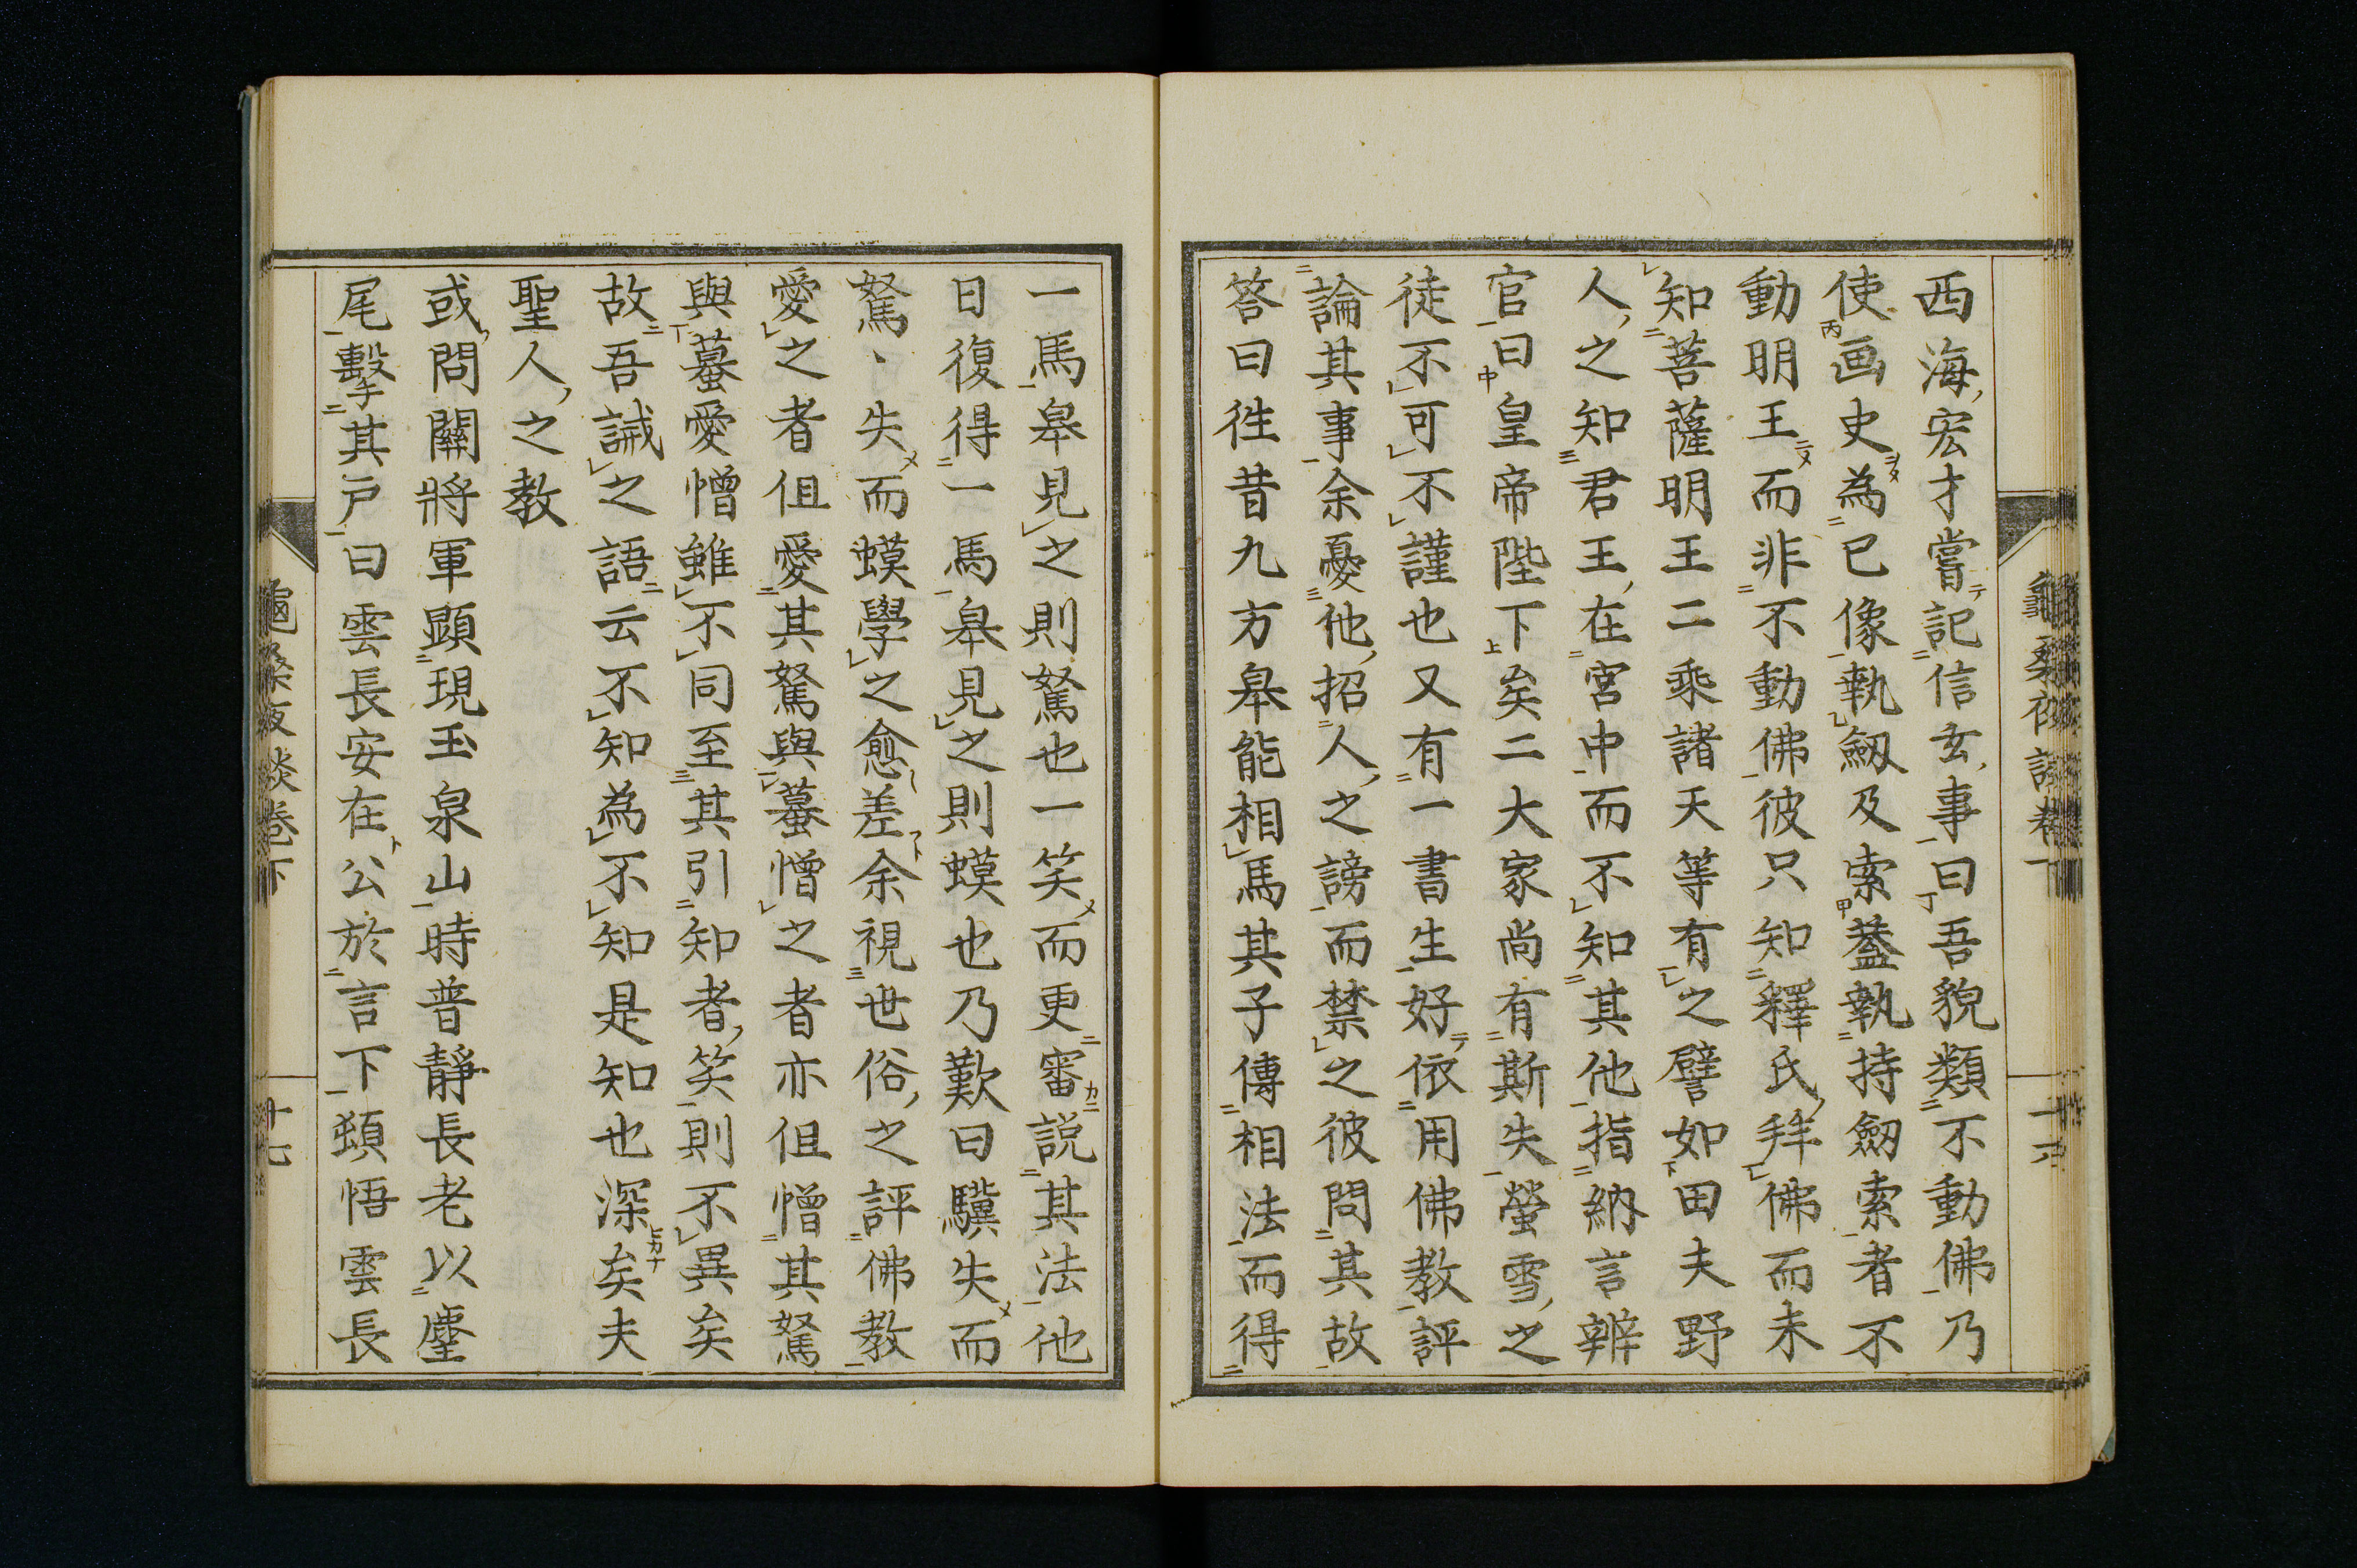 西海宏才嘗記信玄事曰吾貌類不動佛乃
使画史為已像執劔及索葢執持劔索者不
動明王而非不動佛彼只知釋氏拜佛而未
知菩薩明王二乘諸天等有之譬如田夫野
人之知君王在宮中而不知其他指納言辨
官曰皇帝陛下矣二大家尚有斯失螢雪之
徒不可不謹也又有一書生好依用佛教評
論其事余憂他招人之謗而禁之彼問其故
答曰徃昔九方皋能相馬其子傳相法而得
一馬皋見之則駑也一笑而更審説其法他
日復得一馬皋見之則蟆也乃歎曰驥失而
駑、失而蟆學之愈差余視世俗之評佛教
愛之者但愛其駑與蟇憎之者亦但憎其駑
與蟇愛憎雖不同至其引知者笑則不異矣
故吾誡之語云不知為不知是知也深矣夫
聖人之教
或問關將軍顕現玉泉山時普靜長老以麈
尾擊其戸曰雲長安在公於言下頓悟雲長
龜桑夜談卷下
十七